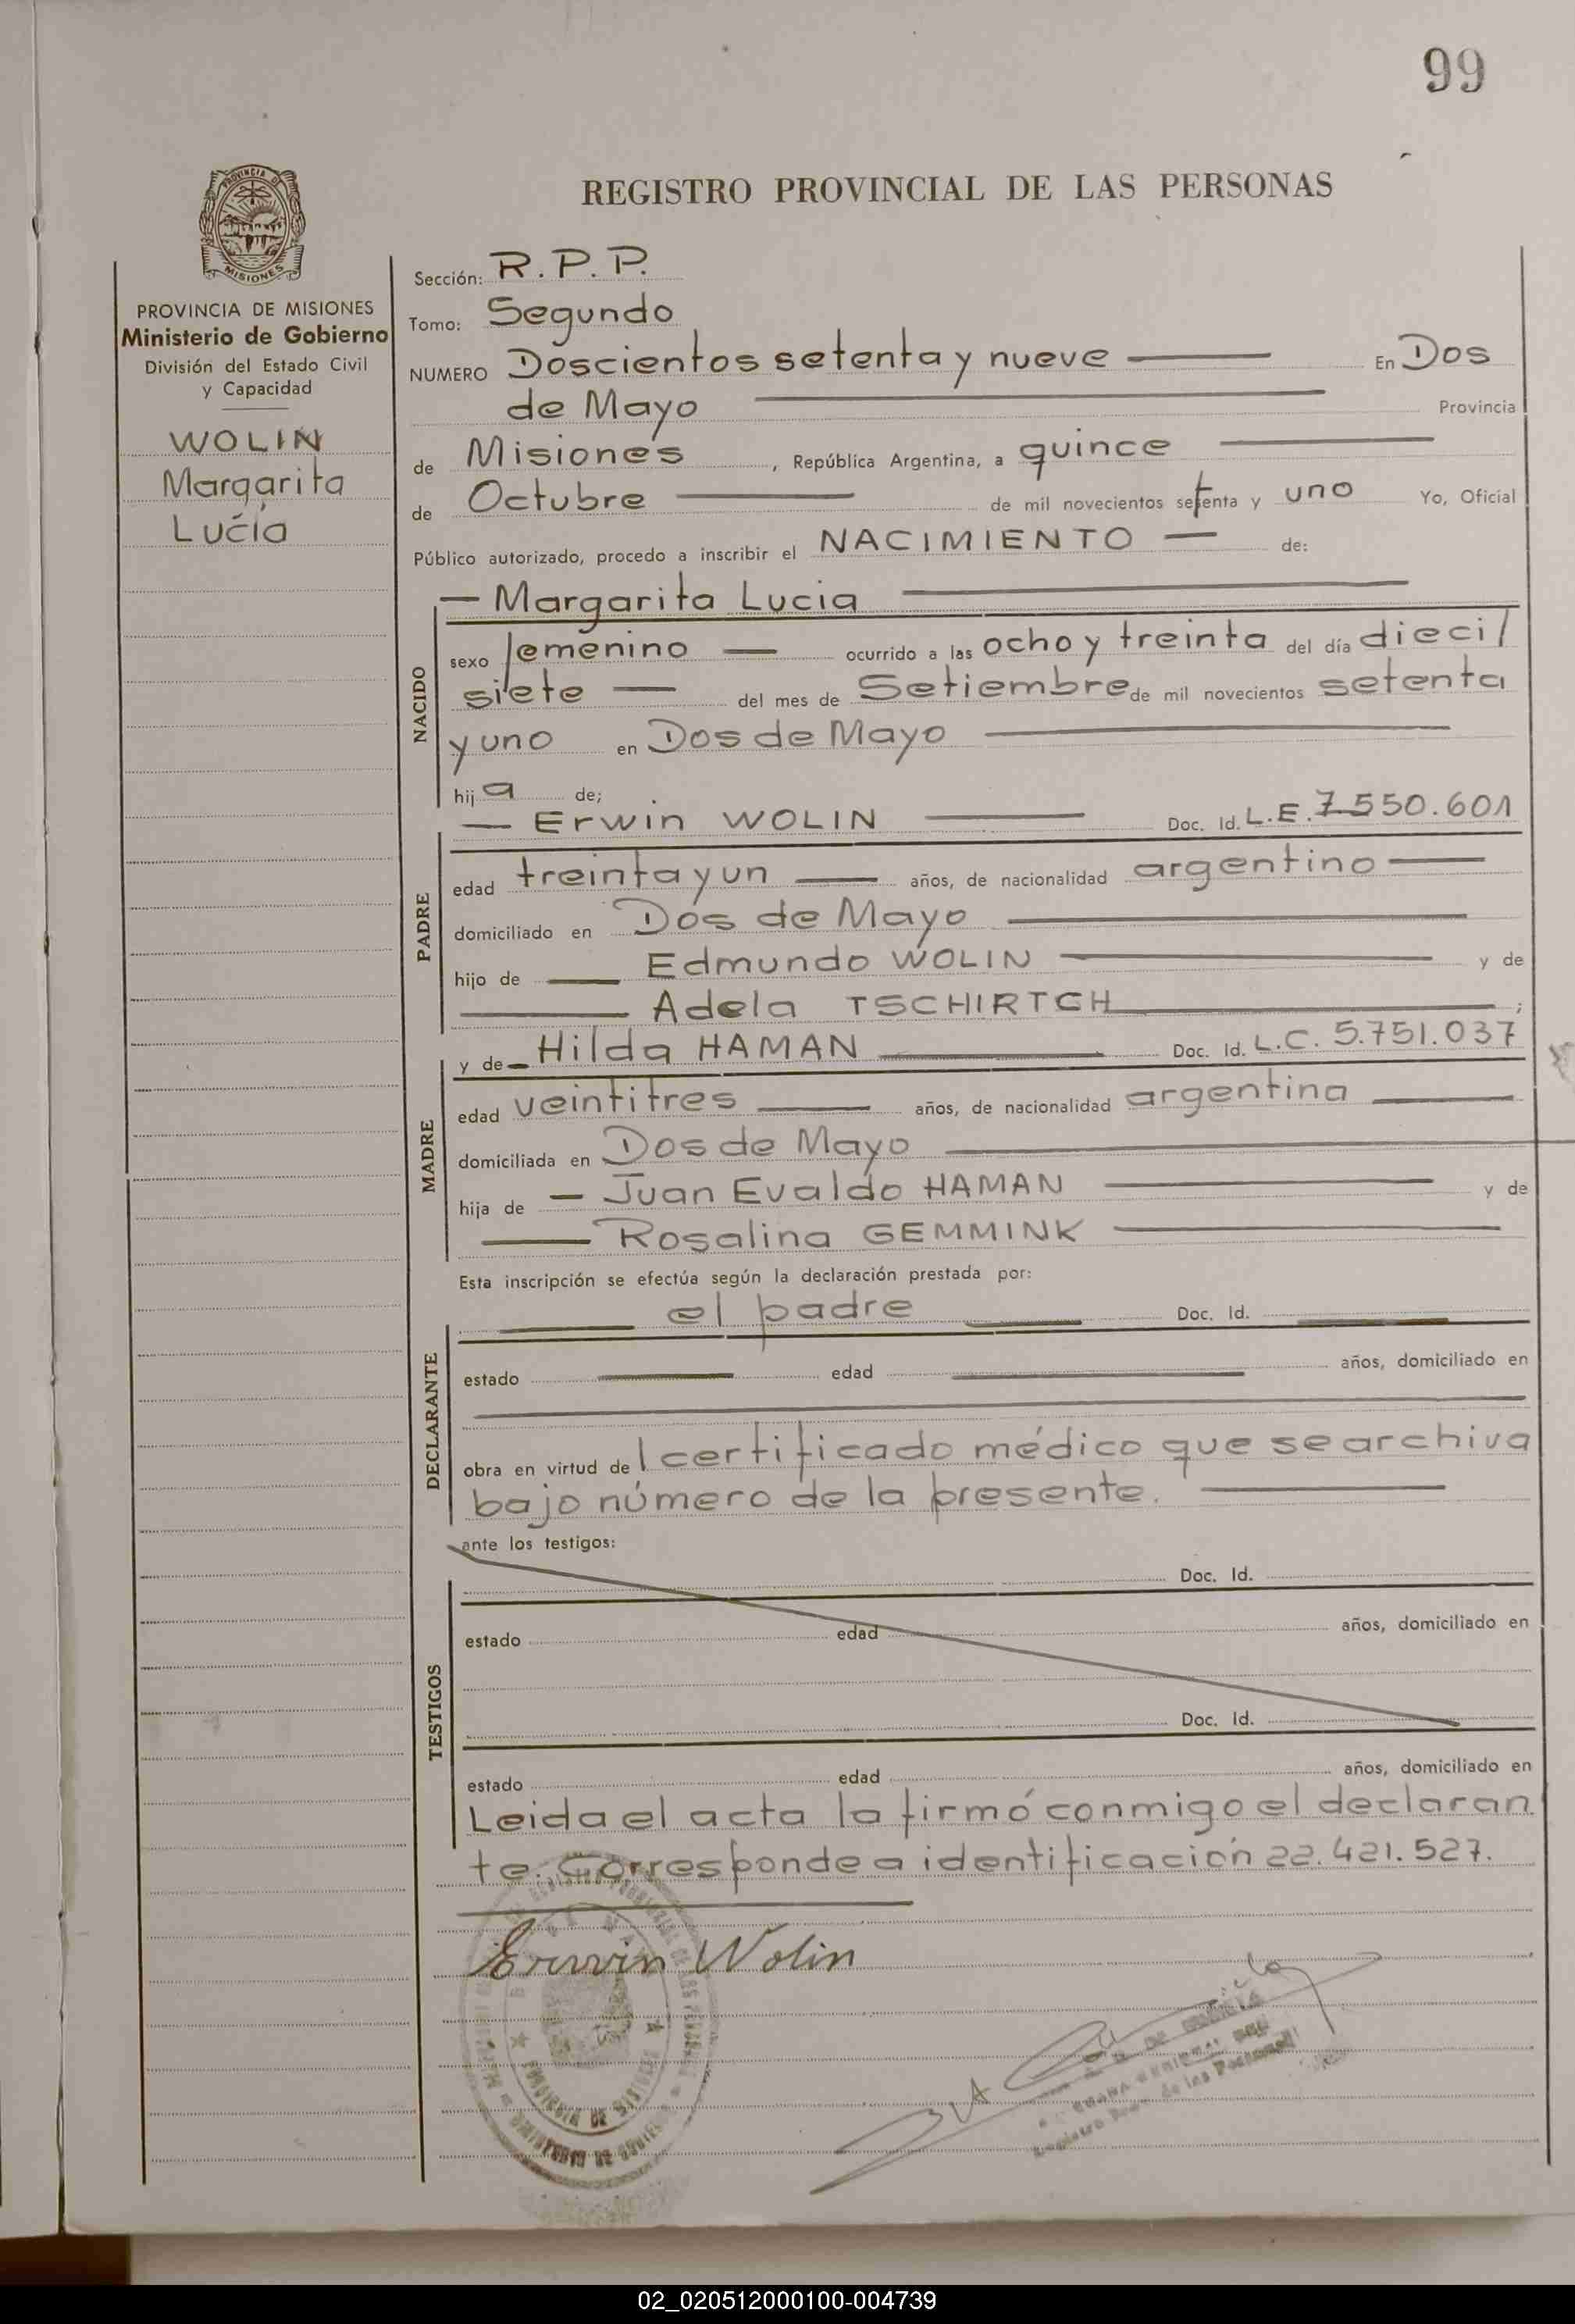 99
REGISTRO PROVINCIAL DE LAS PERSONAS
PROVINCIA DE
MISIONES
PROVINCIA DE MISIONES
Ministerio de Gobierno
División del Estado Civil
y Capacidad
WOLIN
Margarita
Lucía
Sección: R.P.P.
Tomo: Segundo
NUMERO Doscientos setenta y nueve En Dos
de Mayo Provincia
de Misiones, República Argentina, a quince
de Octubre de mil novecientos setenta y uno Yo, Oficial
Público autorizado, procedo a inscribir el NACIMIENTO de:
Margarita Lucia
NACIDO
sexo femenino ocurrido a las ocho y treinta del día dieci/
siete del mes de Setiembre de mil novecientos setenta
y uno en Dos de Mayo
hija de;
Erwin WOLIN Doc. Id. L.E. 7.550.601
PADRE
edad treinta y un años, de nacionalidad argentino
domiciliado en Dos de Mayo
hijo de Edmundo WOLIN y de
Adela TSCHIRTCH ;
y de Hilda HAMAN Doc. Id. L.C. 5.751.037
MADRE
edad veintitres años, de nacionalidad argentina
domiciliada en Dos de Mayo
hija de Juan Evaldo HAMAN y de
Rosalina GEMMINK
Esta inscripción se efectúa según la declaración prestada por:
el padre Doc. Id.
DECLARANTE
estado edad años, domiciliado en
obra en virtud de l certificado médico que se archiva
bajo número de la presente.
ante los testigos:
Doc. Id.
TESTIGOS
estado edad años, domiciliado en
Doc. Id.
estado edad años, domiciliado en
Leida el acta la firmó conmigo el declaran
te. Corresponde a identificación 22.421.527.
Erwin Wolin
PROVINCIA DE MISIONES
de las Personas
02_020512000100-004739